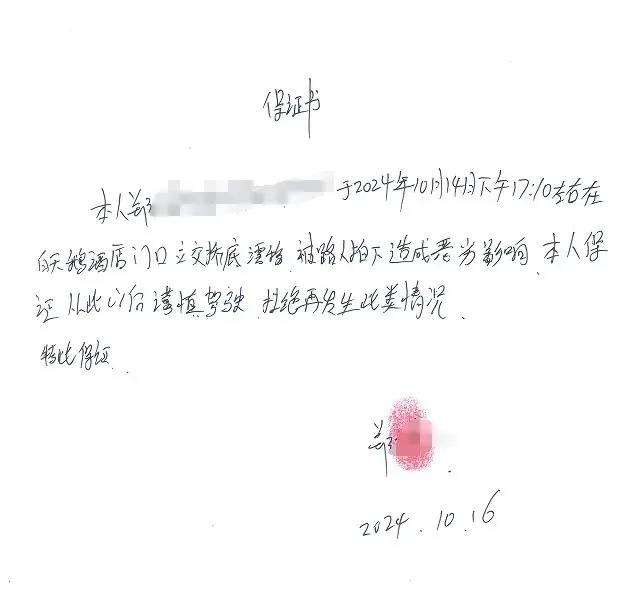 保证书
本人郑 于2024年10月14日下午17:10左右在
白天鹅酒店门口立交桥底漂移 被路人拍下造成恶劣影响 本人保
证从此以后谨慎驾驶 杜绝再发生此类情况
特此保证.
郑
2024.10.16